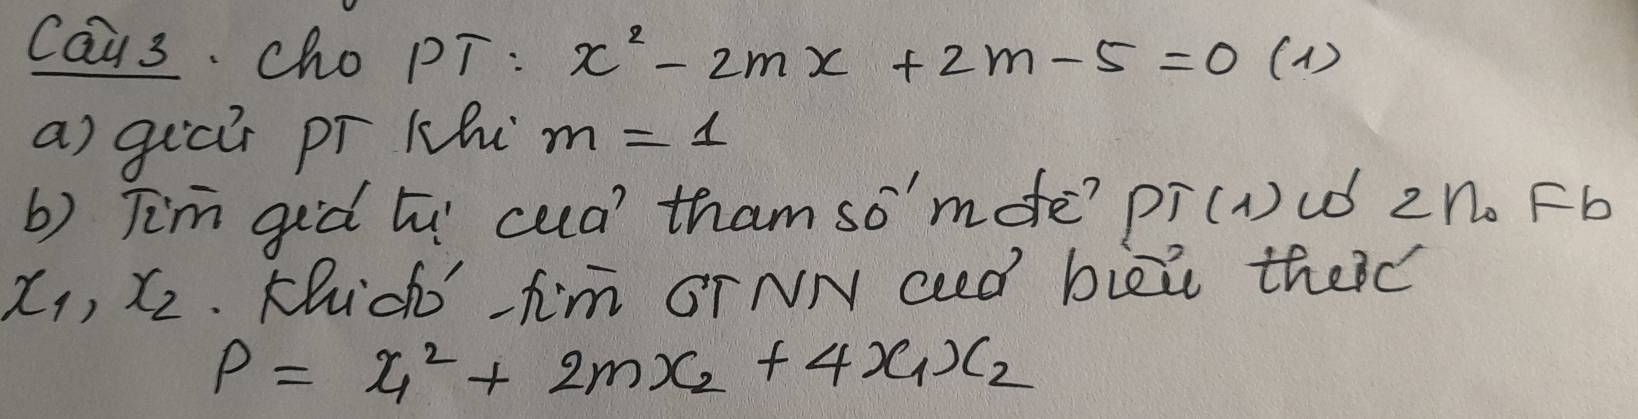 Câu 3. Cho PT: x² - 2mx + 2m - 5 = 0 (1)
a) giải PT khi m = 1
b) Tìm giá trị của tham số m để PT (1) có 2 no Fb
x₁, x₂. Khi đó tìm GTNN của biểu thức
P = x₁² + 2mx₂ + 4x₁x₂